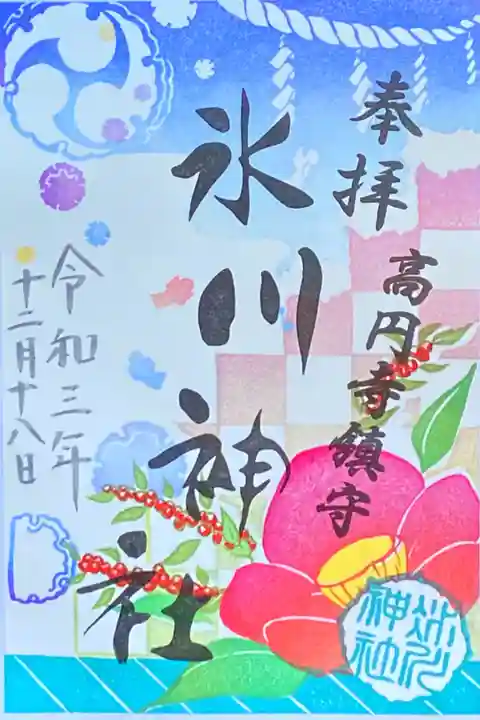 奉拝
高円寺鎮守
氷川神社
令和三年
十二月十八日
氷川神社